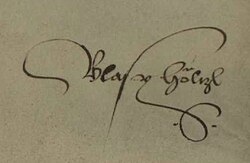 Blasy Höltzl
.S.